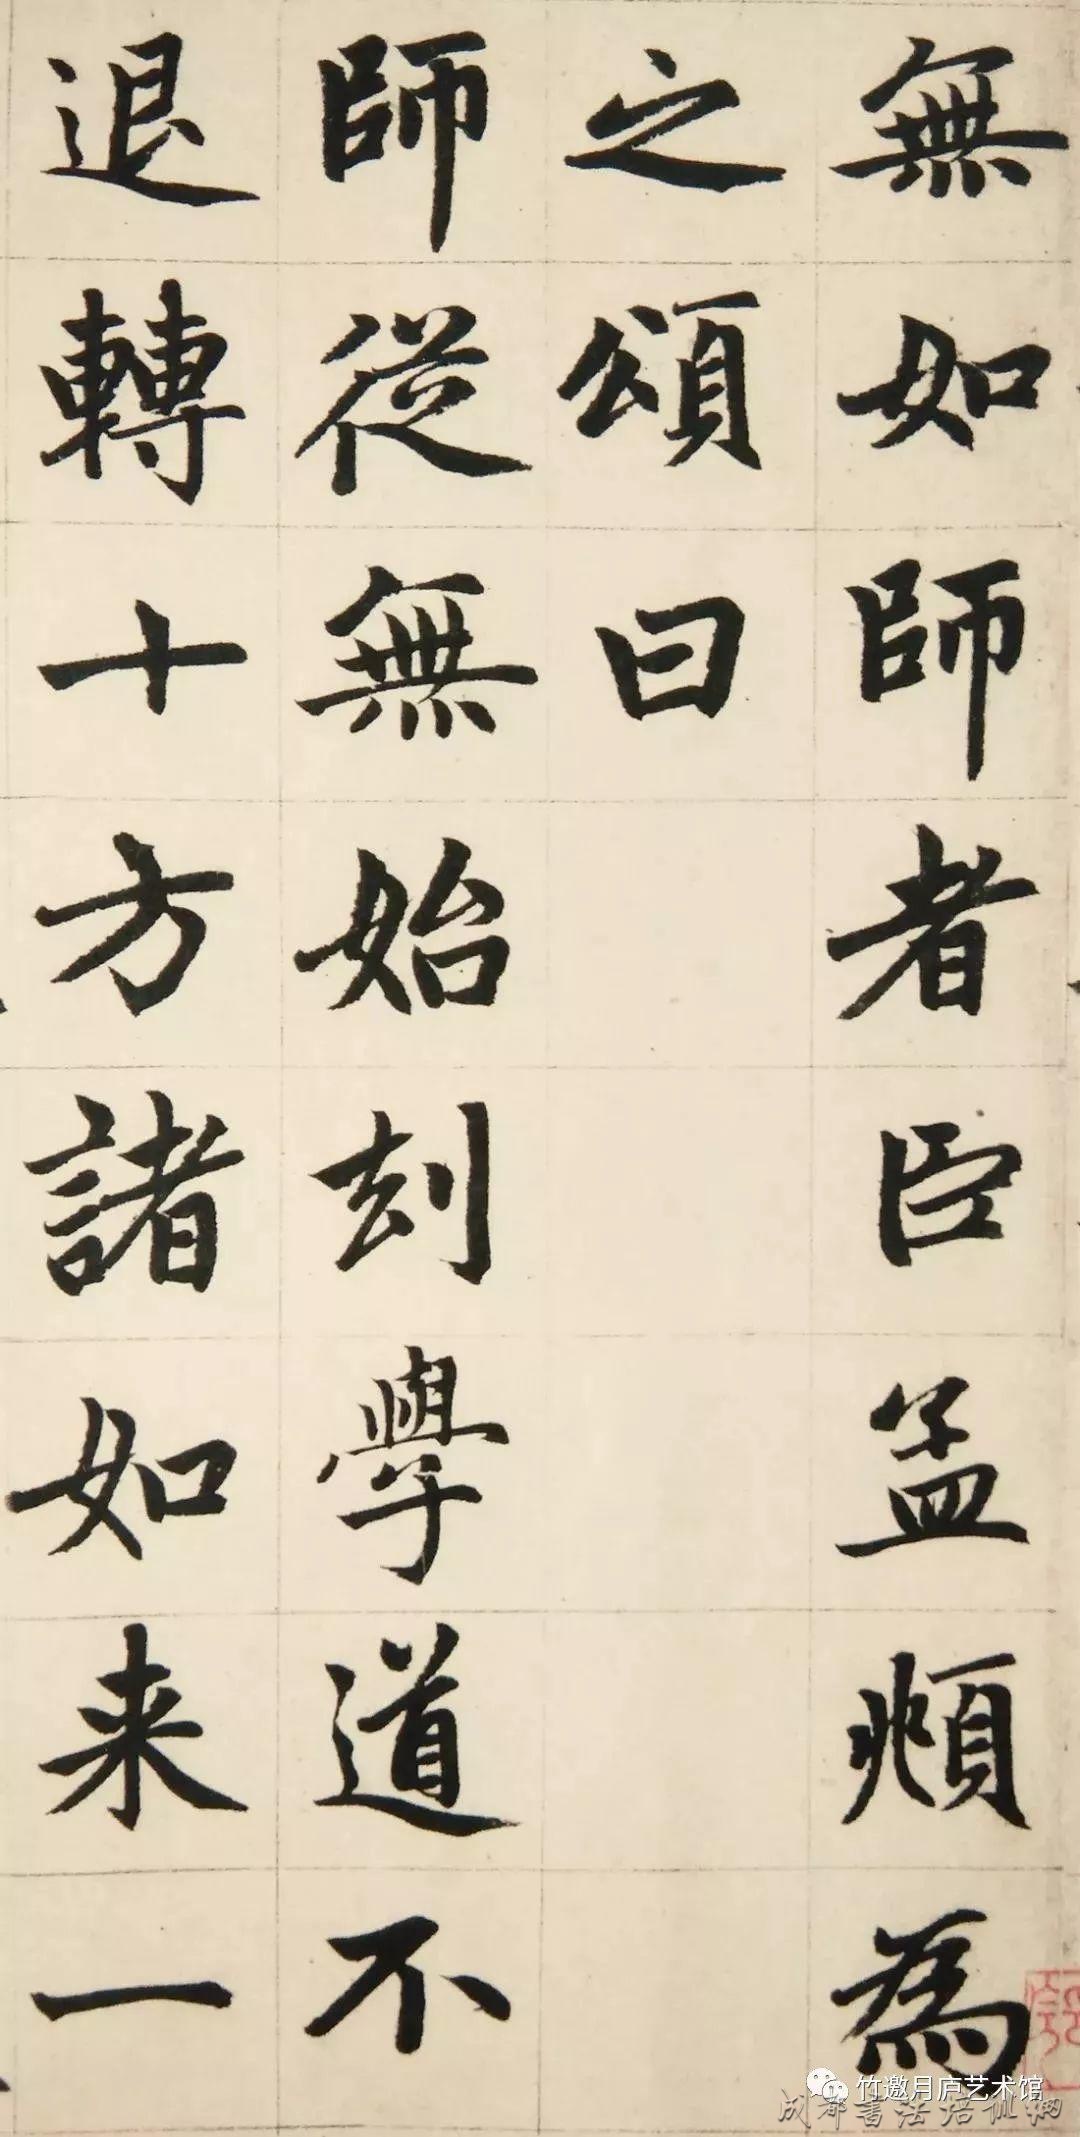 無如師者臣孟頫為
之頌曰
師從無始刦學道不
退轉十方諸如来一
竹邀月庐艺术馆
成都書法培训網